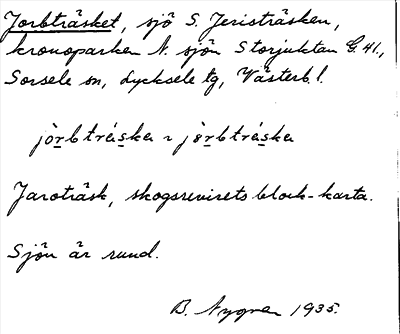 Jorbträsket, sjö S. Jeristräsken,
kronoparken N. sjön Storjuktan G. 41,
Sorsele sn, Lycksele tg, Västerb. l.
jòrbtrėska ~ jèrbtrėska
Jarotträsk, skogsrevirets block-karta.
Sjön är rund.
B. Nygren 1935.